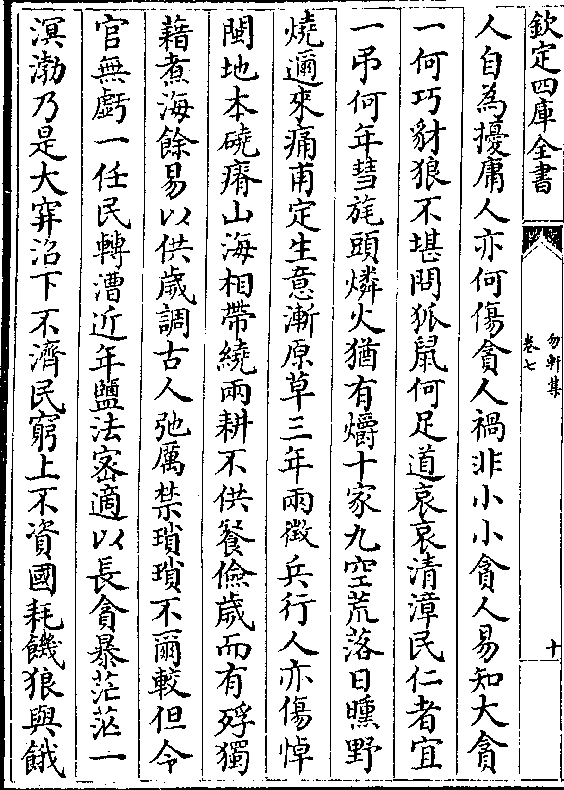 欽定四庫全書
勿軒集
卷七
十
人自為擾庸人亦何傷貪人禍非小小貪人易知大貪
一何巧豺狼不堪問狐鼠何足道哀哀清漳民仁者宜
一弔何年彗旄頭燐火猶有爝十家九空荒落日曛野
燒邇來痛甫定生意漸原草三年兩徵兵行人亦傷悼
閩地本磽瘠山海相帶繞兩耕不供餐儉歲而有殍獨
藉煮海餘易以供歲調古人弛厲禁瑣瑣不爾較但令
官無虧一任民轉漕近年鹽法宻適以長貪暴茫茫一
溟渤乃是大穽沼下不濟民窮上不資國耗饑狼與餓